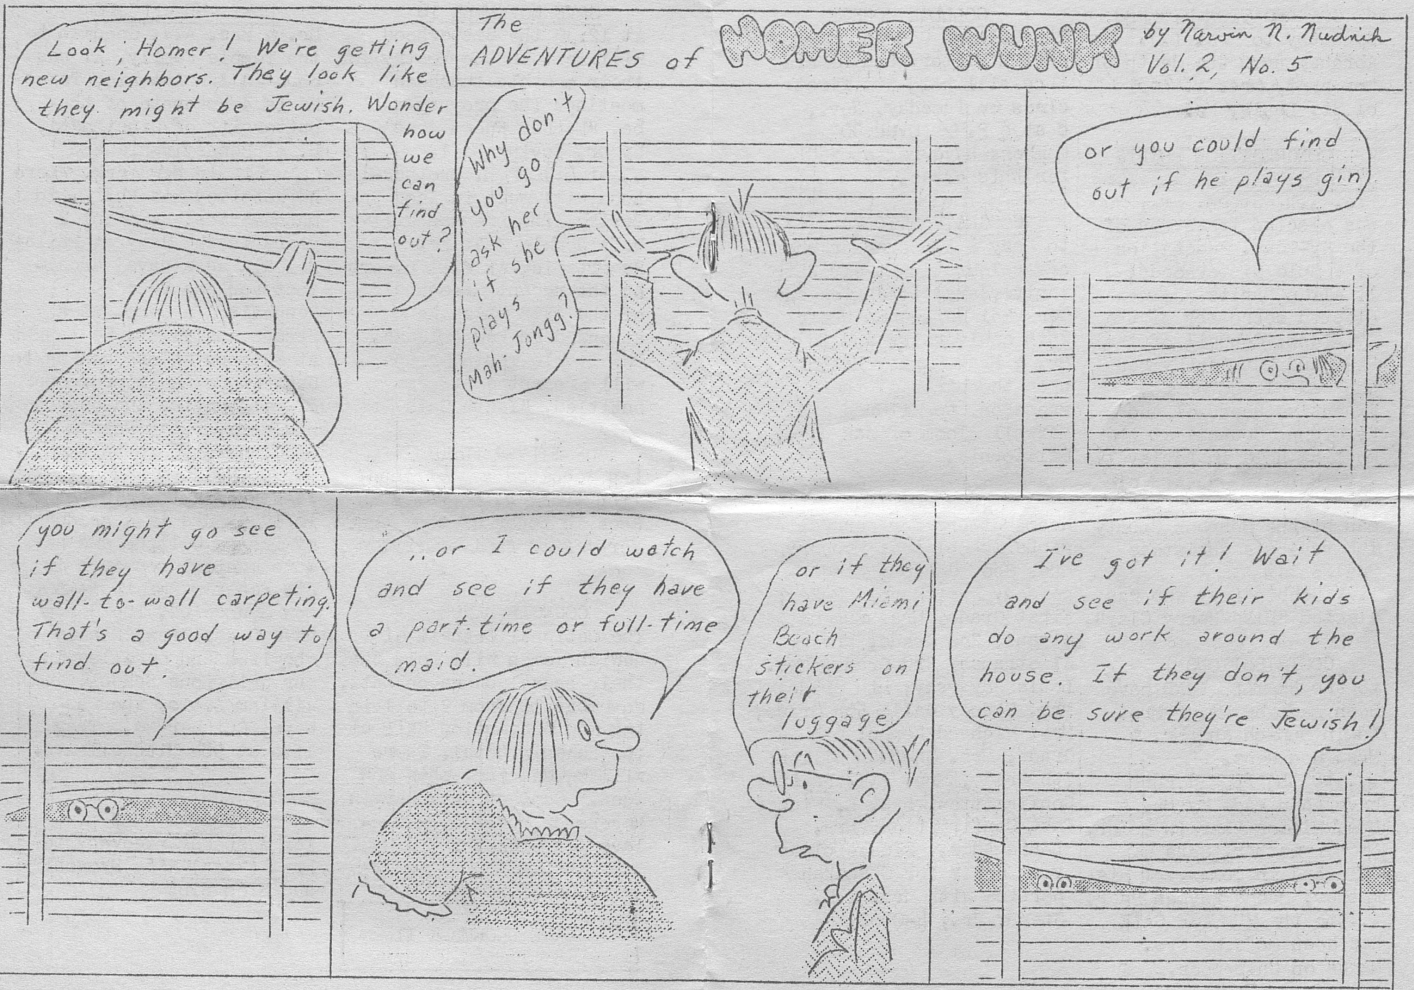 Look, Homer! We're getting
new neighbors. They look like
they might be Jewish. Wonder
how
we
can
find
out?
The
ADVENTURES of HOMER WUNK by Narvin N. Nudnick
Vol. 2, No. 5
Why don't
you go
ask her
if she
plays
Mah-Jongg?
or you could find
out if he plays gin
you might go see
if they have
wall-to-wall carpeting.
That's a good way to
find out.
...or I could watch
and see if they have
a part-time or full-time
maid.
or if they
have Miami
Beach
stickers on
their
luggage
I've got it! Wait
and see if their kids
do any work around the
house. If they don't, you
can be sure they're Jewish!